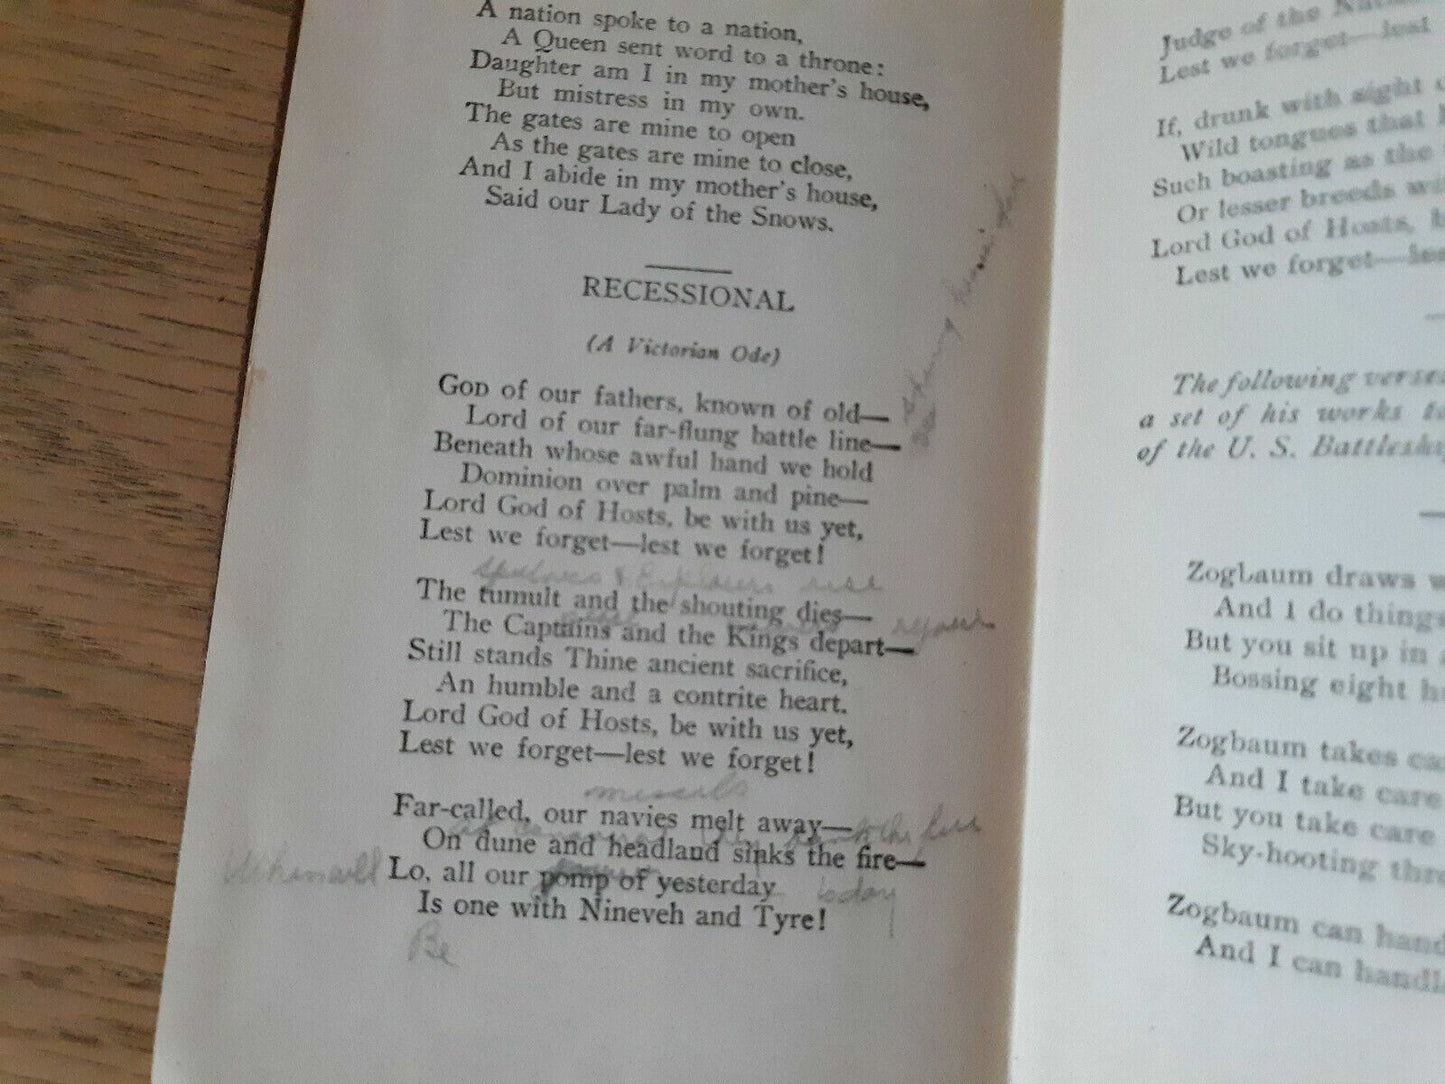 A nation spoke to a nation,
A Queen sent word to a throne:
Daughter am I in my mother's house,
But mistress in my own.
The gates are mine to open
As the gates are mine to close,
And I abide in my mother's house,
Said our Lady of the Snows.
RECESSIONAL
(A Victorian Ode)
GOD of our fathers, known of old—
Lord of our far-flung battle line—
Beneath whose awful hand we hold
Dominion over palm and pine—
Lord God of Hosts, be with us yet,
Lest we forget—lest we forget!
rise
The tumult and the shouting dies—
The Captains and the Kings depart—
Still stands Thine ancient sacrifice,
An humble and a contrite heart.
Lord God of Hosts, be with us yet,
Lest we forget—lest we forget!
missals
Far-called, our navies melt away—
On dune and headland sinks the fire—
Lo, all our pomp of yesterday
today
Is one with Nineveh and Tyre!
Be
Judge of the
Lest we forget—lest
If, drunk with sight
Wild tongues that
Such boasting as the
Or lesser breeds
Lord God of Hosts,
Lest we forget—
The following verses
a set of his works
of the U. S. Battleship
Zogbaum draws
And I do things
But you sit up in
Bossing eight
Zogbaum takes
And I take care
But you take care
Sky-hooting
Zogbaum can
And I can